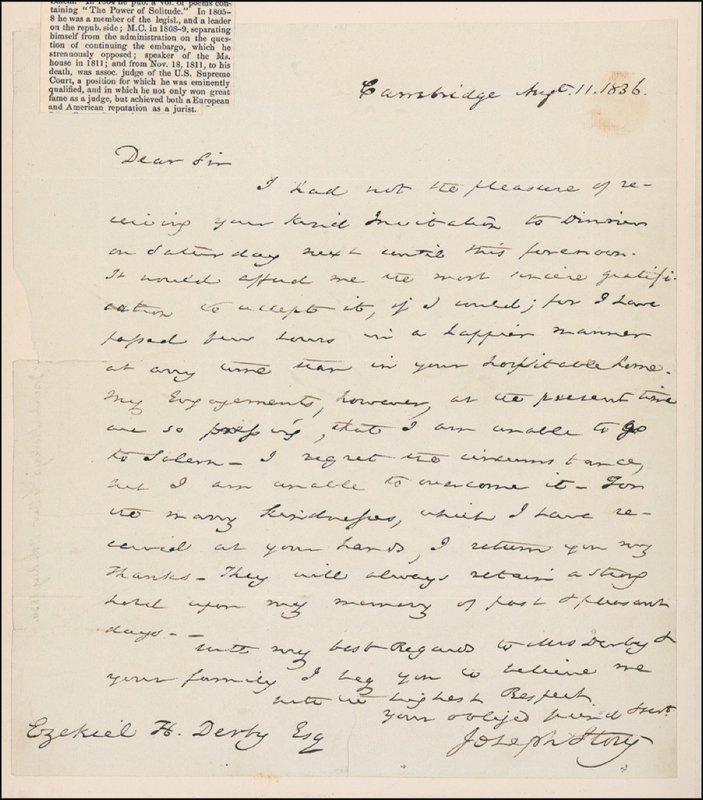 taining "The Power of Solitude." In 1805-
8 he was a member of the legisl., and a leader
on the repub. side; M.C. in 1808-9, separating
himself from the administration on the ques-
tion of continuing the embargo, which he
strenuously opposed; speaker of the Ms.
house in 1811; and from Nov. 18, 1811, to his
death, was assoc. judge of the U.S. Supreme
Court, a position for which he was eminently
qualified, and in which he not only won great
fame as a judge, but achieved both a European
and American reputation as a jurist.
Cambridge Augt. 11. 1836.
Dear Sir
I had not the pleasure of re-
ceiving your kind Invitation to Dinner
on Saturday next until this forenoon.
It would afford me the most sincere gratifi-
cation to accept it, if I could; for I have
passed few hours in a happier manner
at any time than in your hospitable home.
My Engagements, however, at the present time
are so pressing, that I am unable to go
to Salem – I regret the circumstance,
but I am unable to overcome it – For
the many kindnesses, which I have re-
ceived at your hands, I return you my
thanks – They will always retain a strong
hold upon my memory of past & pleasant
days – –
with my best Regards to Mrs Derby &
your family I beg you to believe me
with the highest Respect
your obliged friend & servt.
Joseph Story
Ezekiel H. Derby Esq